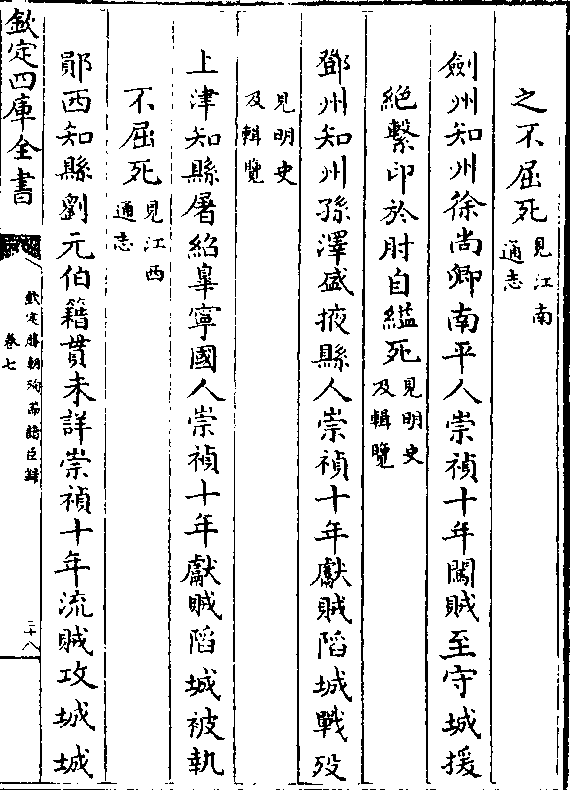 之不屈死見江南通志
劍州知州徐尚卿南平人崇禎十年闖賊至守城援
絶繫印於肘自縊死見明史及輯覽
鄧州知州孫澤盛掖縣人崇禎十年獻賊陷城戰歿
見明史及輯覽
上津知縣屠紹臯寧國人崇禎十年獻賊陷城被執
不屈死見江西通志
鄖西知縣劉元伯籍貫未詳崇禎十年流賊攻城城
欽定四庫全書
欽定勝朝殉節諸臣錄
卷七
三十八